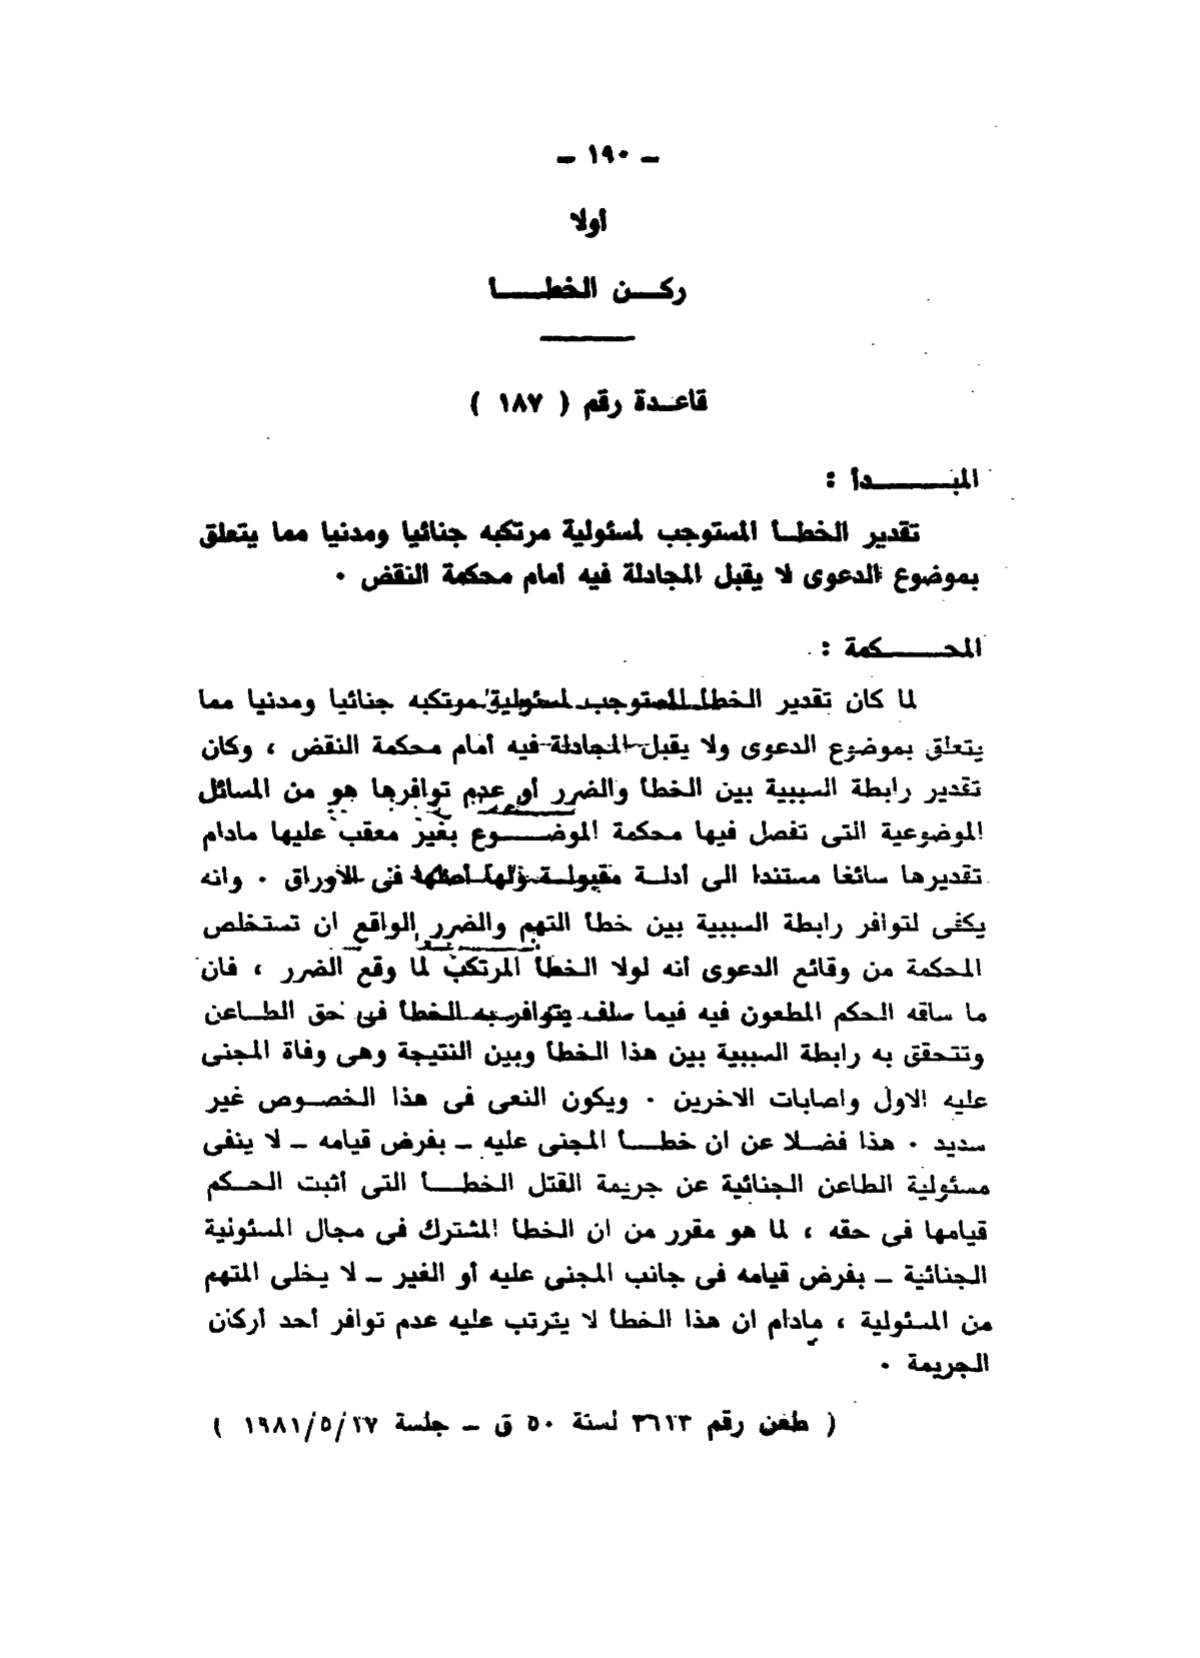 ـ ١٩٠ ـ
أولا
ركـــن الخطـــــا
قاعــدة رقم ( ١٨٧ )
المبـــــــــدأ :
تقدير الخطــا المستوجب لمسئولية مرتكبه جنائيا ومدنيا مما يتعلق
بموضوع الدعوى لا يقبل المجادلة فيه أمام محكمة النقض ٠
المحـــــــــكمة :
لما كان تقدير الخطا المستوجب لمسئولية مرتكبه جنائيا ومدنيا مما
يتعلق بموضوع الدعوى ولا يقبل المجادلة فيه أمام محكمة النقض ، وكان
تقدير رابطة السببية بين الخطأ والضرر أو عدم توافرها هو من المسائل
الموضوعية التى تفصل فيها محكمة الموضـــــوع بغير معقب عليها مادام
تقديرها سائغا مستندا الى أدلــة مقبولــة ولها أصلها فى الأوراق ٠ وانه
يكفى لتوافر رابطة السببية بين خطأ المتهم والضرر الواقع ان تستخلص
المحكمة من وقائع الدعوى أنه لولا الخطأ المرتكب لما وقع الضرر ، فان
ما ساقه الحكم المطعون فيه فيما سلف يتوافر به الخطأ فى حق الطــاعن
وتتحقق به رابطة السببية بين هذا الخطأ وبين النتيجة وهى وفاة المجنى
عليه الاول واصابات الاخرين ٠ ويكون النعى فى هذا الخصــوص غير
سديد ٠ هذا فضــلا عن ان خطـــأ المجنى عليه ـ بفرض قيامه ـ لا ينفى
مسئولية الطاعن الجنائية عن جريمة القتل الخطـــأ التى أثبت الحــكم
قيامها فى حقه ، لما هو مقرر من ان الخطأ المشترك فى مجال المسئولية
الجنائية ـ بفرض قيامه فى جانب المجنى عليه أو الغير ـ لا يخلى المتهم
من المسئولية ، مادام ان هذا الخطأ لا يترتب عليه عدم توافر أحد أركان
الجريمة ٠
( طعن رقم ٣٦١٣ لسنة ٥٠ ق ـ جلسة ١٩٨١/٥/٢٧ )